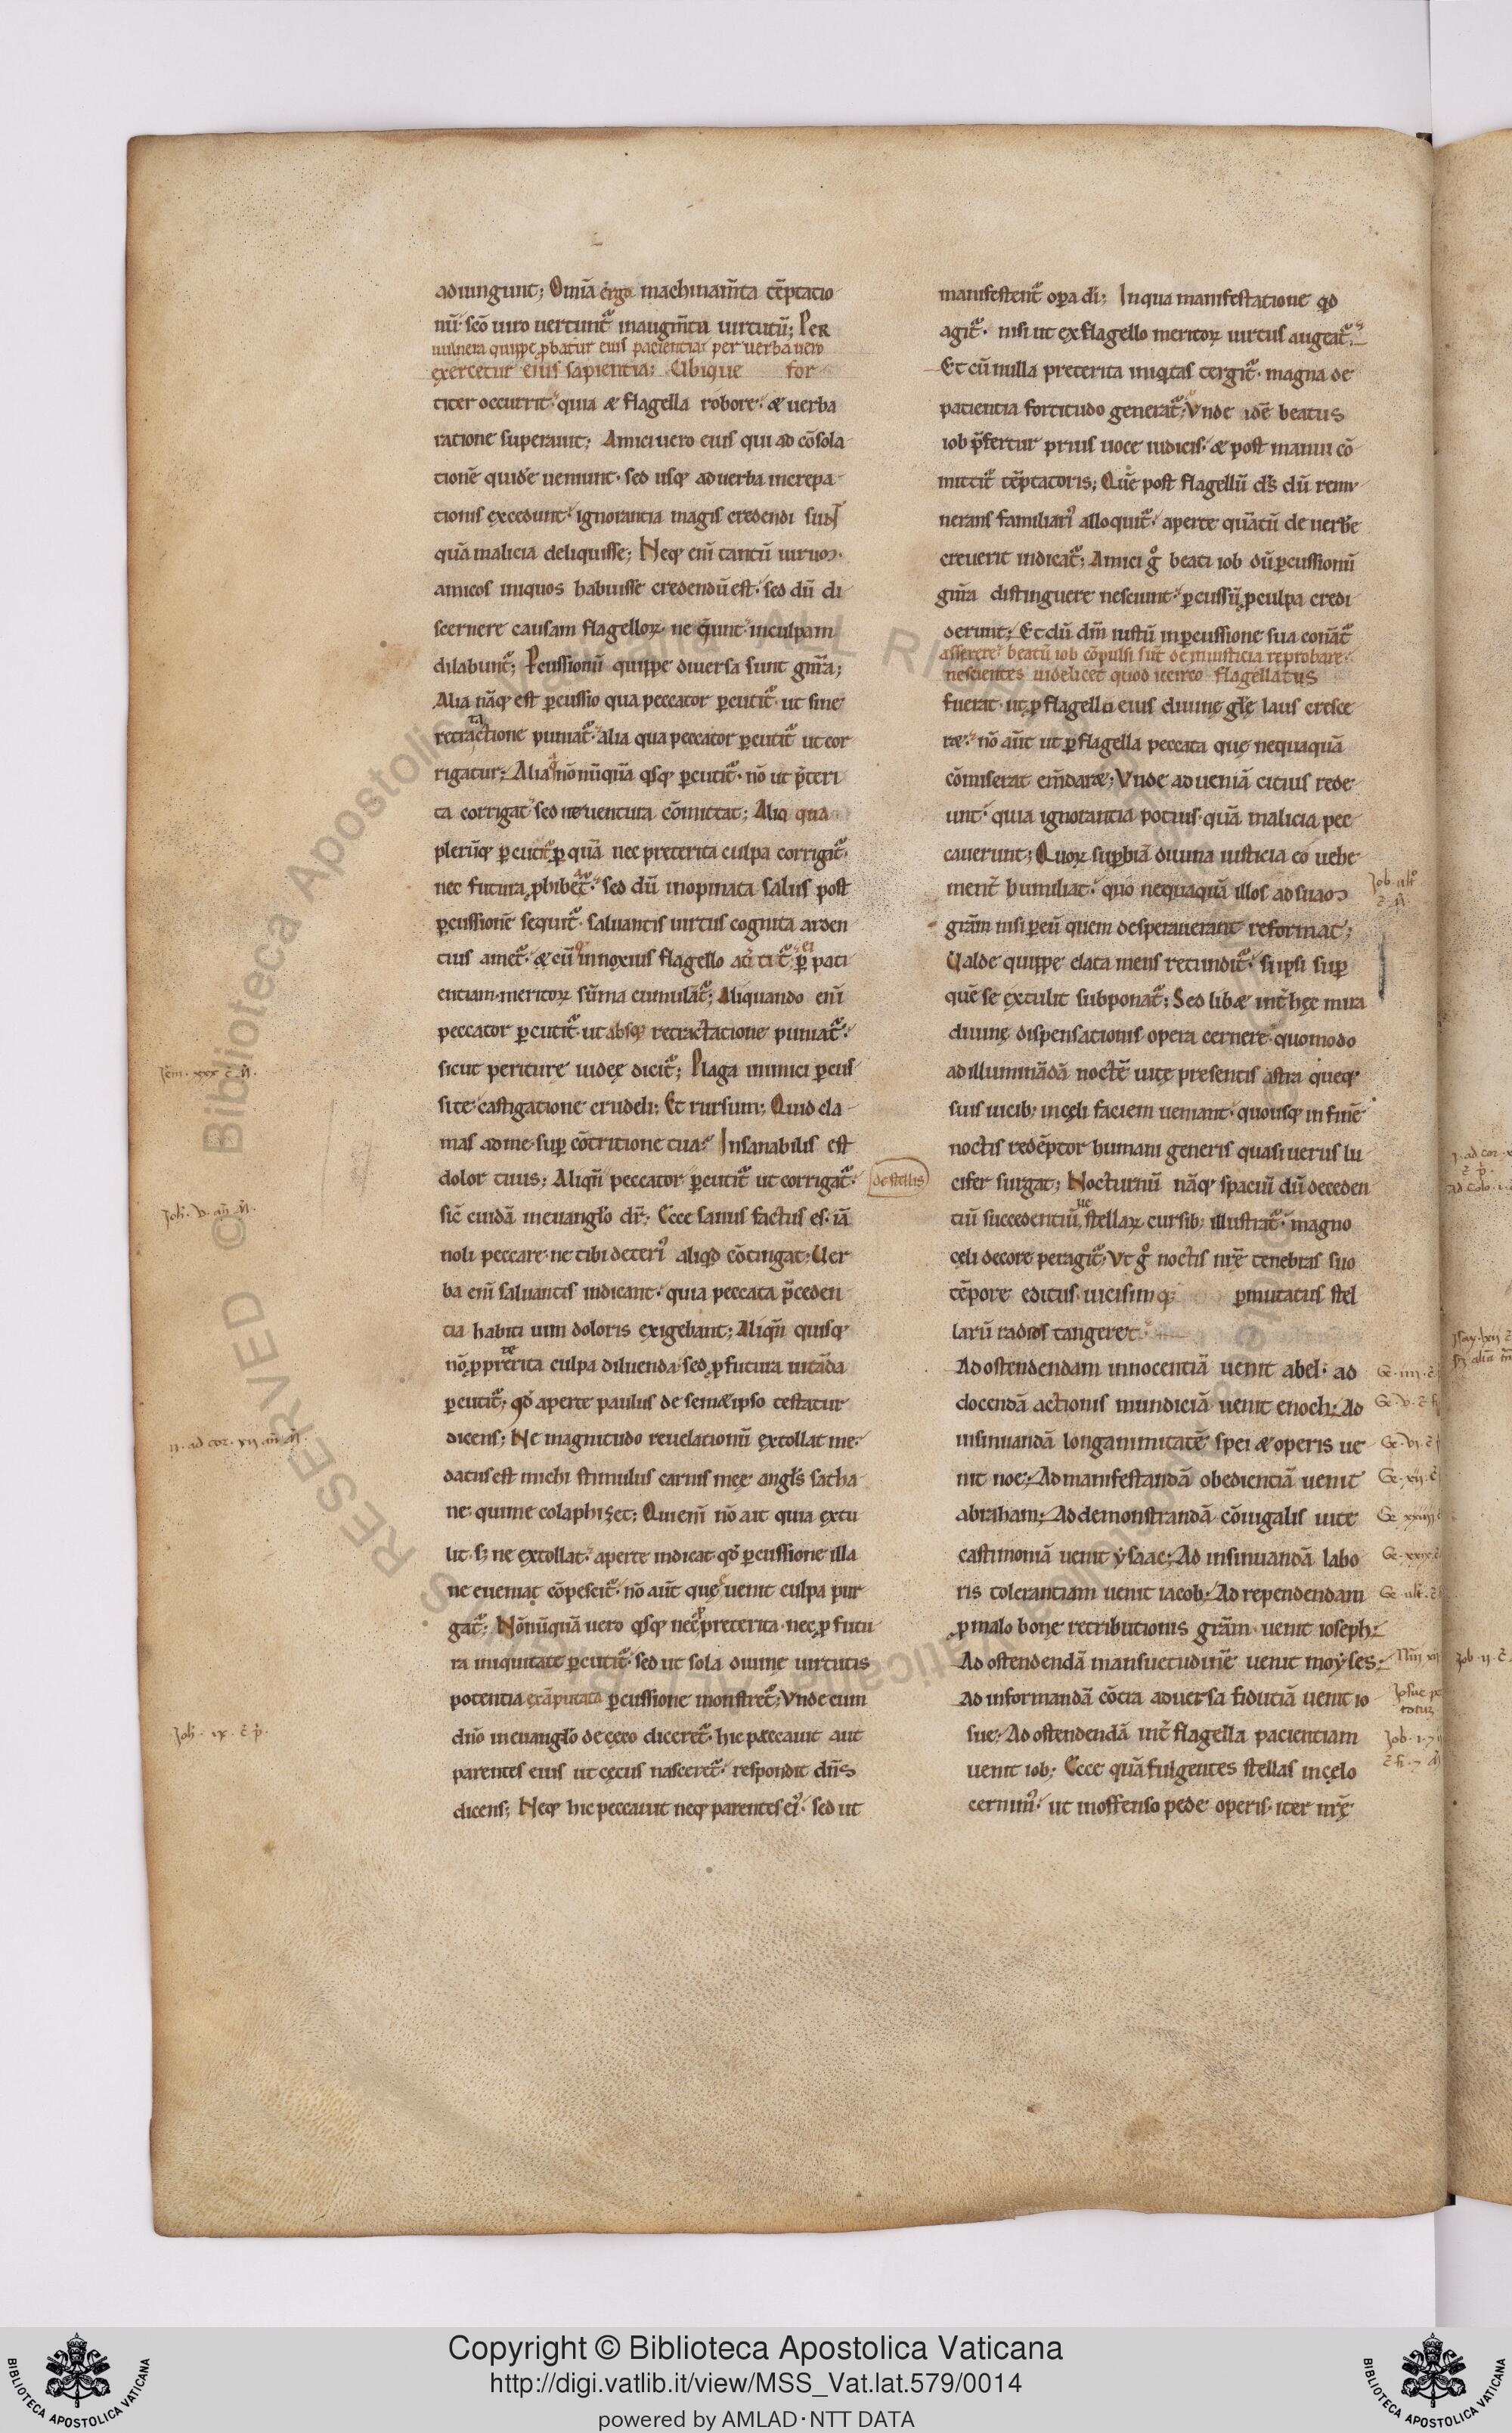 adiungunt; Om̄ia ergo machinam̄ta tēptatio
nū. sc̄o uiro uertunt᷑ inaugm̄tū uirtutū; Per
uulnera quippe ꝓbatur eius pacientia. per uerba uero
exercetur eius sapientia; Ubique for
titer occurrit. quia æ flagella robore. æ uerba
ratione superauit; Amici uero eius qui ad cōsola
tionē quidē ueniunt. sed usq; ad uerba increpa
tionis excedunt. ignorantia magis credendi sunt
quā malicia deliquisse; Neq; eni̅ tantū uirum.
amicos iniquos habuisse credendū est. sed dū di
scernere causam flagelloꝝ. ne q̄unt. in culpam
dilabunt᷑; Pcussionū quippe diuersa sunt gn̄a;
Alia nāq; est ꝑcussio qua peccator ꝑcutit᷑. ut sine
retractatione puniat᷑. alia qua peccator ꝑcutit᷑ ut cor
rigatur; Alia nōnūquā qisq; ꝑcutit᷑. nō ut p̄teri
ta corrigat. sed ne uentura cōmittat; Aliq qua
plerūq; ꝑcutit᷑ ꝑ quā nec preterita culpa corrigit᷑.
nec futura ꝓhibet᷑. sed dū inopinata salus post
ꝑcussionē sequit᷑. saluantis uirtus cognita arden
tius amet᷑. æ cū innoxius flagello atterit᷑. ei ꝑ pati
entiam meritoꝝ sūma cumulat᷑; Aliquando eni̅
peccator ꝑcutit᷑. ut absq; retractatione puniat᷑.
sicut periture iudeę dicit᷑; Plaga inimici ꝑcus
si te. castigatione crudeli; Et rursum; Quid cla
mas ad me. suꝑ cōtritione tua? Insanabilis est
dolor tuus; Aliqn̄ peccator ꝑcutit᷑ ut corrigat᷑.
sic̄ cuidā in euangl̄o dr̄; Ecce sanus factus es. iā
noli peccare. ne tibi deteri᾽ aliqd̄ cōtingat; Uer
ba eni̅ saluantis indicant. quia peccata p̄ceden
tia habiti uim doloris exigebant; Aliqn̄ quisq;
nō ꝓ preterita culpa diluenda. sed ꝓ futura uitāda
ꝑcutit᷑; qd̄ aperte paulus de semæipso testatur
dicens; Ne magnitudo reuelationū extollat me.
datus est michi stimulus carnis meę angl̄s satha
ne. qui me colaphizet; Qui eni̅ nō ait quia extu
lit. s; ne extollat. aperte indicat qd̄ ꝑcussione illa
ne eueniat cōpescit᷑. nō aut̄ quę uenit culpa pur
gat᷑; Nōnūquā uero qisq; nec ꝓ preterita. nec ꝓ futu
ra iniquitate ꝑcutit᷑. sed ut sola diuine uirtutis
potentia ex āputata ꝑcussione monstret᷑; Vnde cum
dn̄o in euangl̄o de cęco diceret᷑. hic peccauit aut
parentes eius ut cęcus nasceret᷑. respondit dn̄s
dicens; Neq; hic peccauit neq; parentes ei᾽. sed ut
Iem. xxx c̄ m̄.
Joh. v. añ m̄.
ii. ad cor. xii. añ m̄.
Joh. ix. c̄ p̄.
manifestent᷑ oꝑa di̅; In qua manifestatione qd̄
agit᷑. nisi ut ex flagello meritoꝝ uirtus augeat᷑.
Et cū nulla preterita iniq̄tas tergit᷑. magna de
patientia fortitudo generat᷑; Vnde idē beatus
iob p̄fertur prius uoce iudicis. æ post manu cō
mittit᷑ tēptatoris; Quē post flagellū dn̄s dū remu
nerans familiari᾽ alloquit᷑. aperte quātū de uerb̄e
creuerit indicat᷑; Amici g° beati iob dū ꝑcussionū
gn̄a distinguere nesciunt. ꝑcussū ꝓ culpa credi
derunt; Et dū dm̄ iustū in ꝑcussione sua conāt᷑
asserere. beatū iob cōpulsi sūt de iniusticia reprobare.
nescientes uidelicet quod iccirco flagellatus
fuerat. ut ꝑ flagella eius diuinę gl̄ę laus cresce
ræ. nō aut̄ ut ꝑ flagella peccata quę nequaquā
cōmiserat em̄daræ; Vnde ad ueniā citius rede
unt. quia ignorantia potius. quā malicia pec
cauerunt; Quoꝝ suꝑbiā diuina iusticia eo uehe
ment᷑ humiliat. quo nequaquā illos ad suam
grām nisi ꝑ eū quem desperauerant reformat;
Ualde quippe elata mens retundit᷑. si ipsi suꝑ
quē se extulit subponat᷑; Sed libæ int̄ hęc mira
diuinę dispensationis opera cernere. quomodo
ad illuminādā noctē uitę presentis astra queq;
suis uicib; in cęli faciem ueniant. quousq; in finē
noctis redēptor humani generis quasi uerus lu
de stellis
cifer surgat; Nocturnū nāq; spaciū dū deceden
tiū succedentiūue stellaꝝ cursib; illustrat᷑. magno
cęli decore peragit᷑; Vt g° noctis nr̄ę tenebras suo
tēpore editus. uicisimq; ꝑmutatus stel
larū radius tangeret.
Ad ostendendam innocentiā uenit abel. ad
docendā actionis mundiciā uenit enoch; Ad
insinuandā longanimitatē spei æ operis ue
nit noe; Ad manifestandā obedientiā uenit
abraham; Ad demonstrandā cōiugalis uite
castimoniā uenit ysaac; Ad insinuandā labo
ris tolerantiam uenit iacob; Ad rependendam
ꝓ malo bonę retributionis grām. uenit ioseph;
Ad ostendendā mansuetudinē uenit moyses;
Ad informandā cōtra aduersa fiduciā uenit io
sue; Ad ostendendā int̄ flagella pacientiam
uenit iob; Ecce quā fulgentes stellas in cęlo
cernim᾽. ut inoffenso pede operis. iter nr̄ę
Job. ult᷑
c̄ m̄.
Ge. iiii. c̄
Ge. v. c̄ f
Ge. vi. c̄
Ge. xii. c̄
Ge. xxiiii
Ge. xxix. c̄
Ge. ult̄. c̄
Nm̄ xii
Josue
totuꝫ
Job. i.
Job. ii. c̄
Biblioteca Apostolica Vaticana ALL RIGHTS RESERVED ©
Copyright © Biblioteca Apostolica Vaticana
http://digi.vatlib.it/view/MSS_Vat.lat.579/0014
powered by AMLAD·NTT DATA
BIBLIOTECA APOSTOLICA VATICANA
BIBLIOTECA APOSTOLICA VATICANA